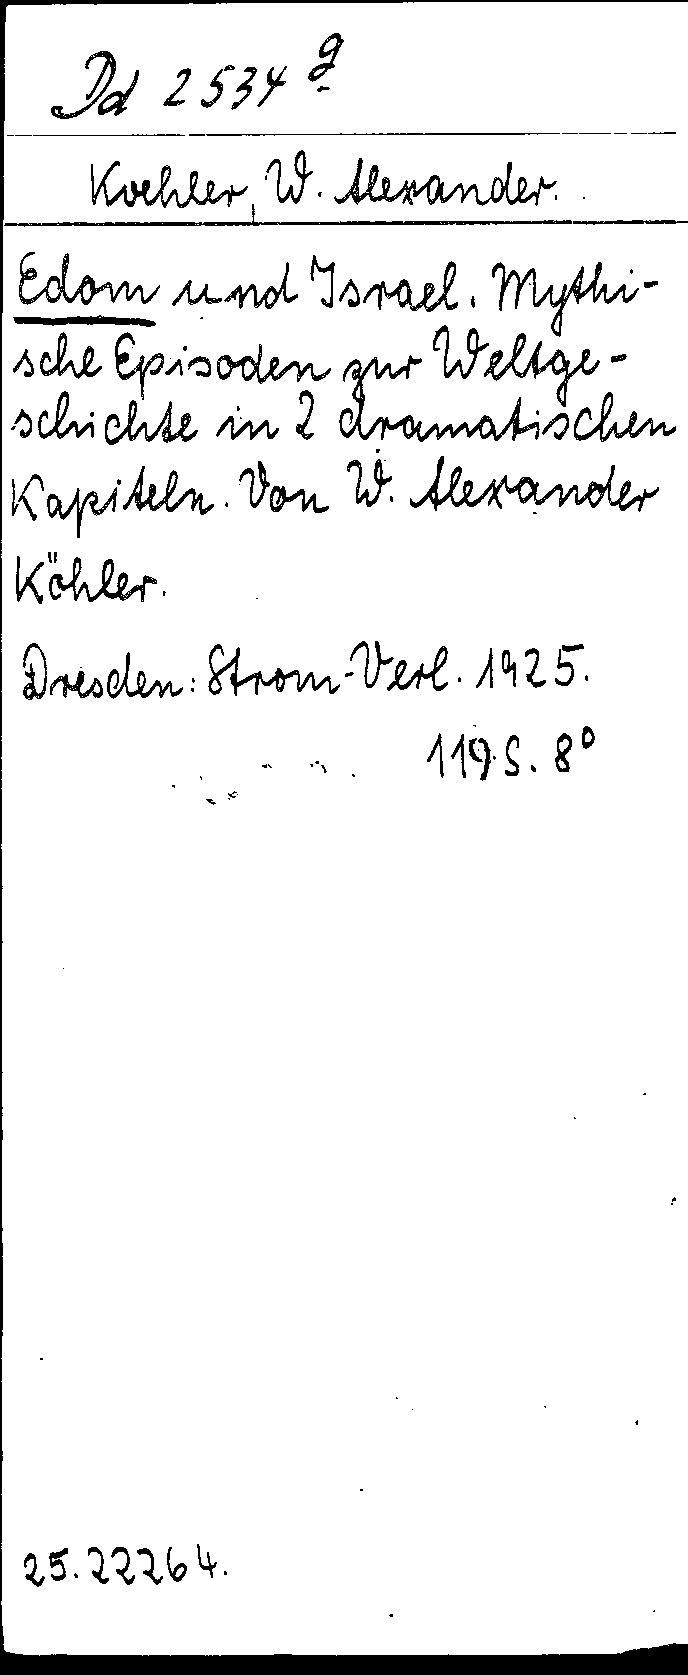 Dd 2534 g
Koehler, W. Alexander.
Edom und Israel. Mythi-
sche Episoden zur Weltge-
schichte in 2 dramatischen
Kapiteln. Von W. Alexander
Köhler.
Dresden: Strom-Verl. 1925.
119 S. 8°
25.22264.